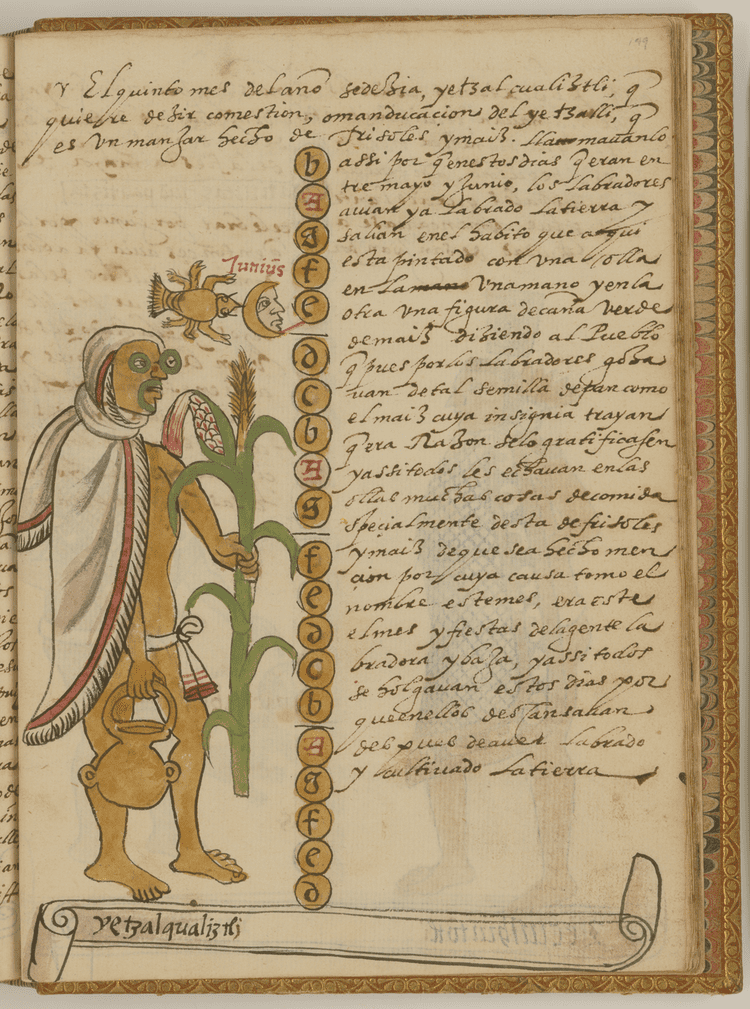 149
Y El quinto mes del año sedezia, yetzalcualiztli, q̃
quierre dezir comestion, o manducacion del yetzalli, q̃
es vn manzar hecho de frisoles y maiz. llamauanlo
assi por q̃ enestos dias q̃ eran en
tre mayo y Junio, los labradores
auian ya labrado la tierra y
salian enel habito que aqui
esta pintado con vna olla
en la vna mano y en la
otra vna figura de caña verde
de maiz diziendo al Pueblo
q̃ pues por los labradores goza
uan de tal semilla de pan como
el maiz cuya insignia trayan
q̃ era Razon se lo gratificasen
y assi todos les echauan en las
ollas muchas cosas de comida
specialmente desta de frisoles
y maiz de que se a hecho men
cion por cuya causa tomo el
nombre este mes, era este
el mes y fiestas dela gente la
bradora y baza, y assi todos
se holgauan estos dias por
que en ellos descansauan
despues de auer labrado
y cultiuado la tierra
Junius
b
A
g
f
e
d
c
b
A
g
f
e
d
c
b
A
g
f
e
d
yetzalqualiztli